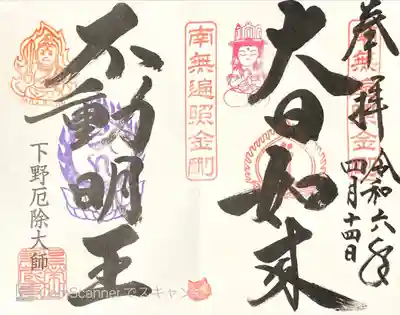 奉拝
令和六年
四月十四日
南無遍照金剛
大日如来
南無遍照金剛
不動明王
下野厄除大師
Scannerでスキャン